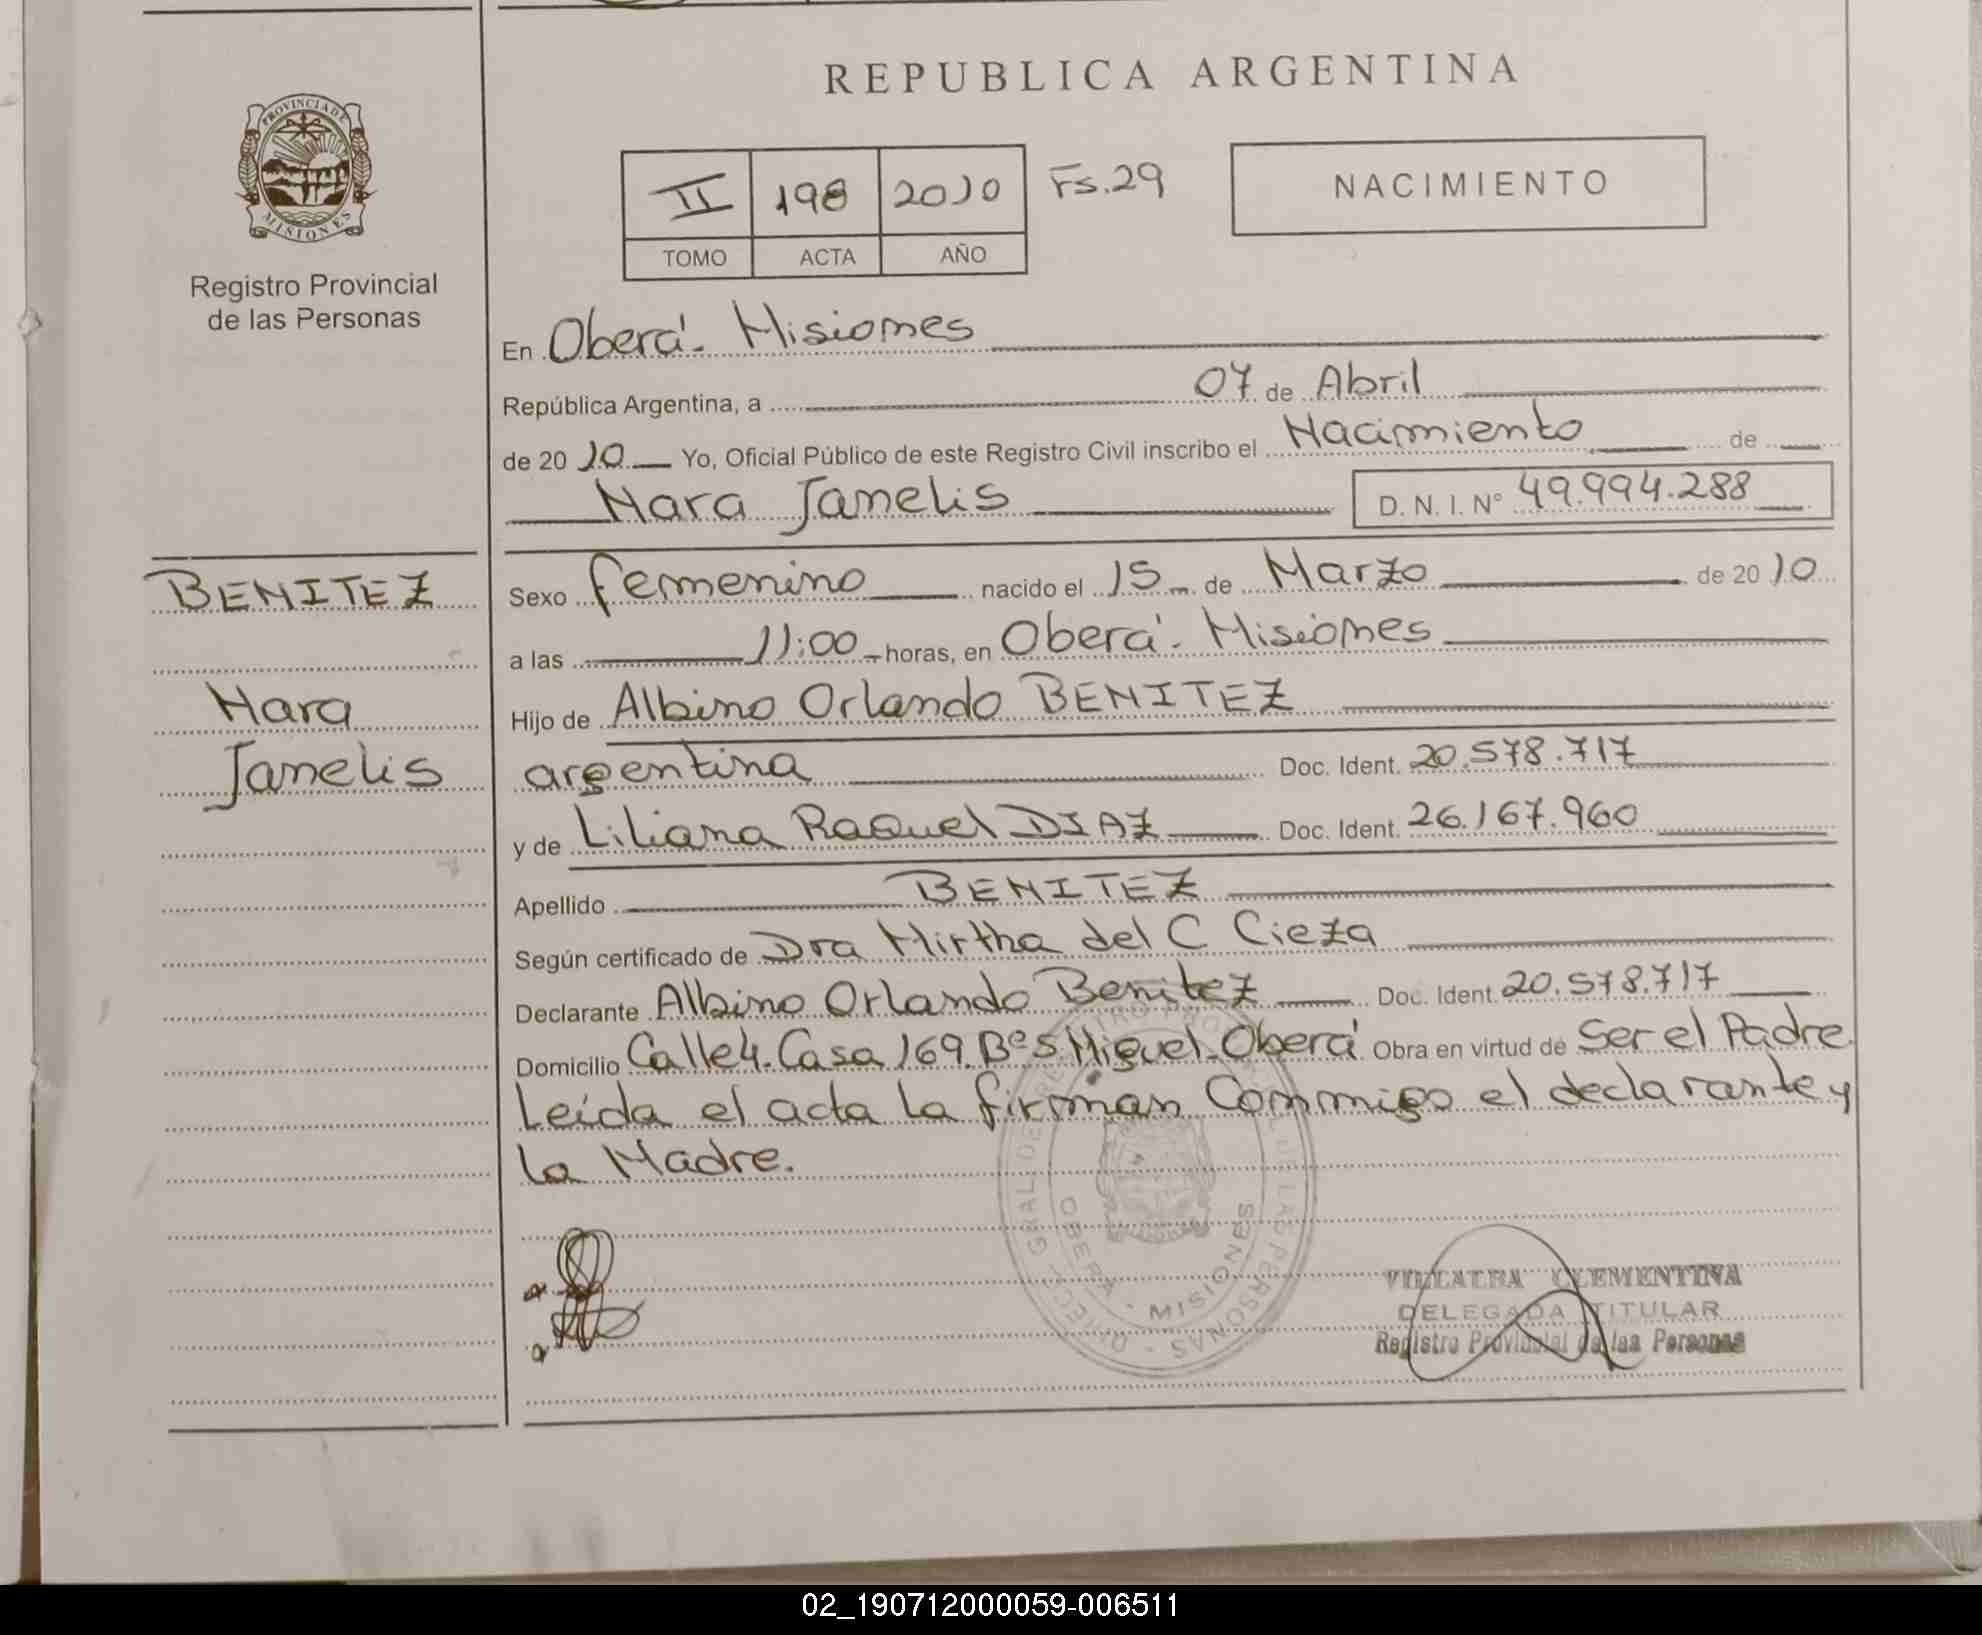 REPUBLICA ARGENTINA
PROVINCIA DE
MISIONES
Registro Provincial
de las Personas
II 198 2010 Fs.29
TOMO ACTA AÑO
NACIMIENTO
En Oberá - Misiones
República Argentina, a 07 de Abril
de 20 10 Yo, Oficial Público de este Registro Civil inscribo el Nacimiento de
Mara Janelis D. N. I. N° 49.994.288
BENITEZ
Mara
Janelis
Sexo femenino nacido el 15 de Marzo de 20 10
a las 11:00 horas, en Oberá - Misiones
Hijo de Albino Orlando BENITEZ
argentina Doc. Ident. 20.578.717
y de Liliana Raquel DIAZ Doc. Ident. 26.167.960
Apellido BENITEZ
Según certificado de Dra Mirtha del C Cieza
Declarante Albino Orlando Benitez Doc. Ident. 20.578.717
Domicilio Calle 4. Casa 169. Bº S. Miguel - Oberá Obra en virtud de Ser el Padre
Leída el acta la firman Conmigo el declarante y
la Madre.
OBERA - MISIONES
VILLALBA CLEMENTINA
DELEGADA TITULAR
Registro Provincial de las Personas
02_190712000059-006511